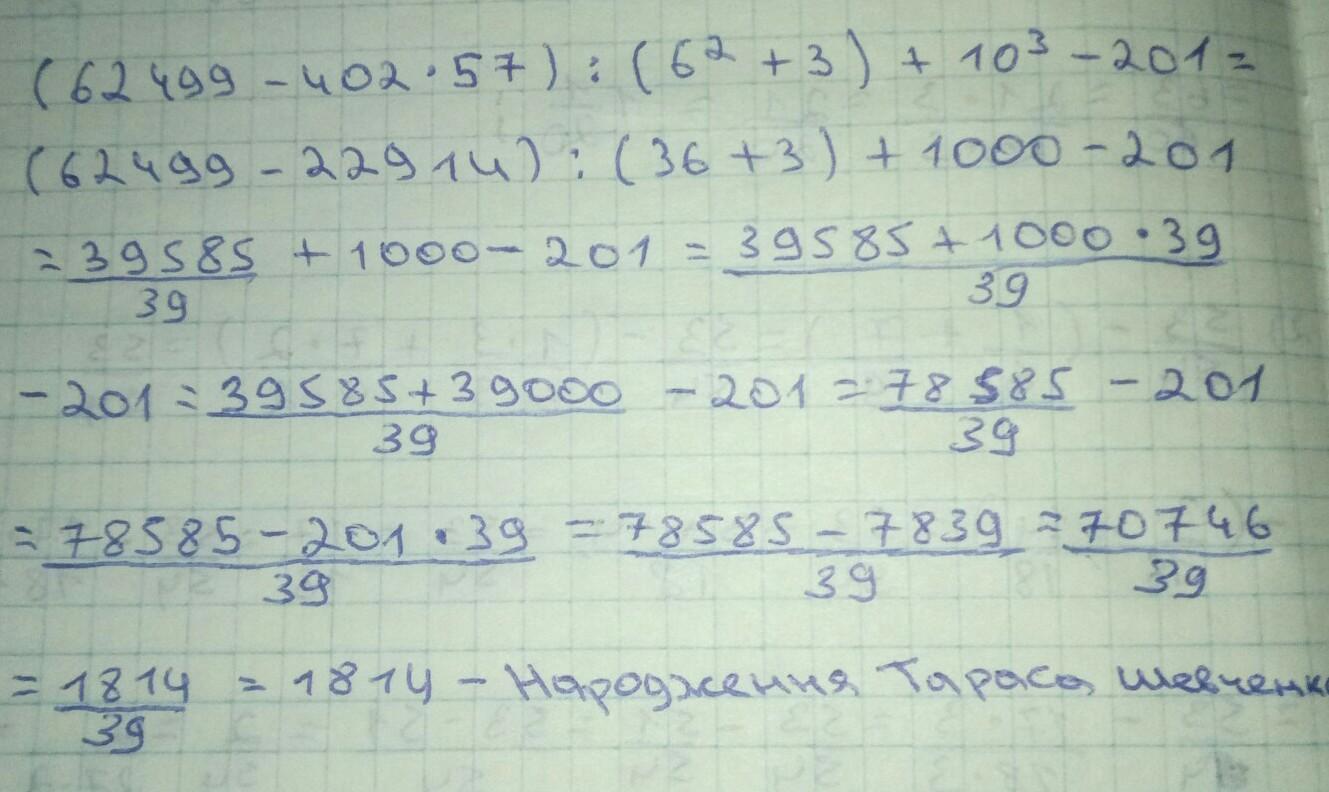 (62499 - 402 · 57) : (6² + 3) + 10³ - 201 =
(62499 - 22914) : (36 + 3) + 1000 - 201
= 39585/39 + 1000 - 201 = (39585 + 1000 · 39)/39
- 201 = (39585 + 39000)/39 - 201 = 78585/39 - 201
= (78585 - 201 · 39)/39 = (78585 - 7839)/39 = 70746/39
= 1814/39 = 1814 - Народження Тараса Шевченка